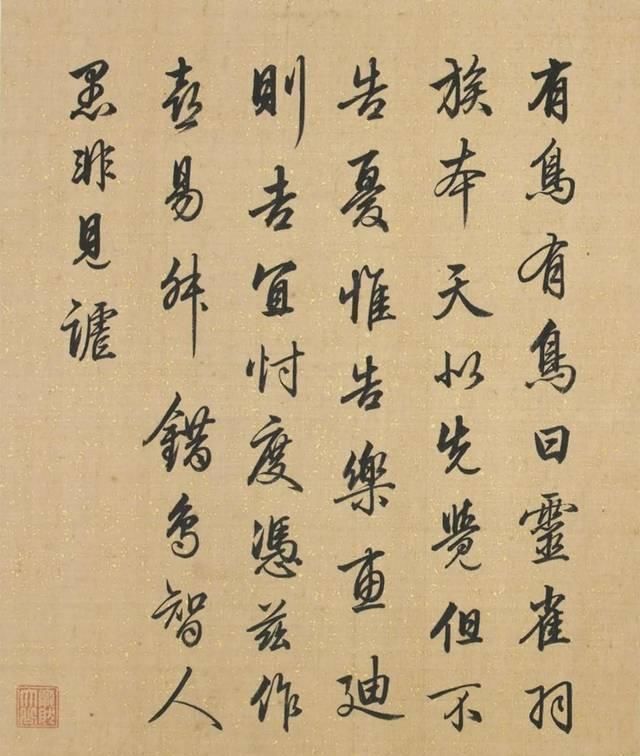 有鳥有鳥曰靈雀羽
族本天以先覺但不
告憂惟告樂惠廸
則吉宜忖度憑茲作
喜易舛錯鳥智人
愚非見謔